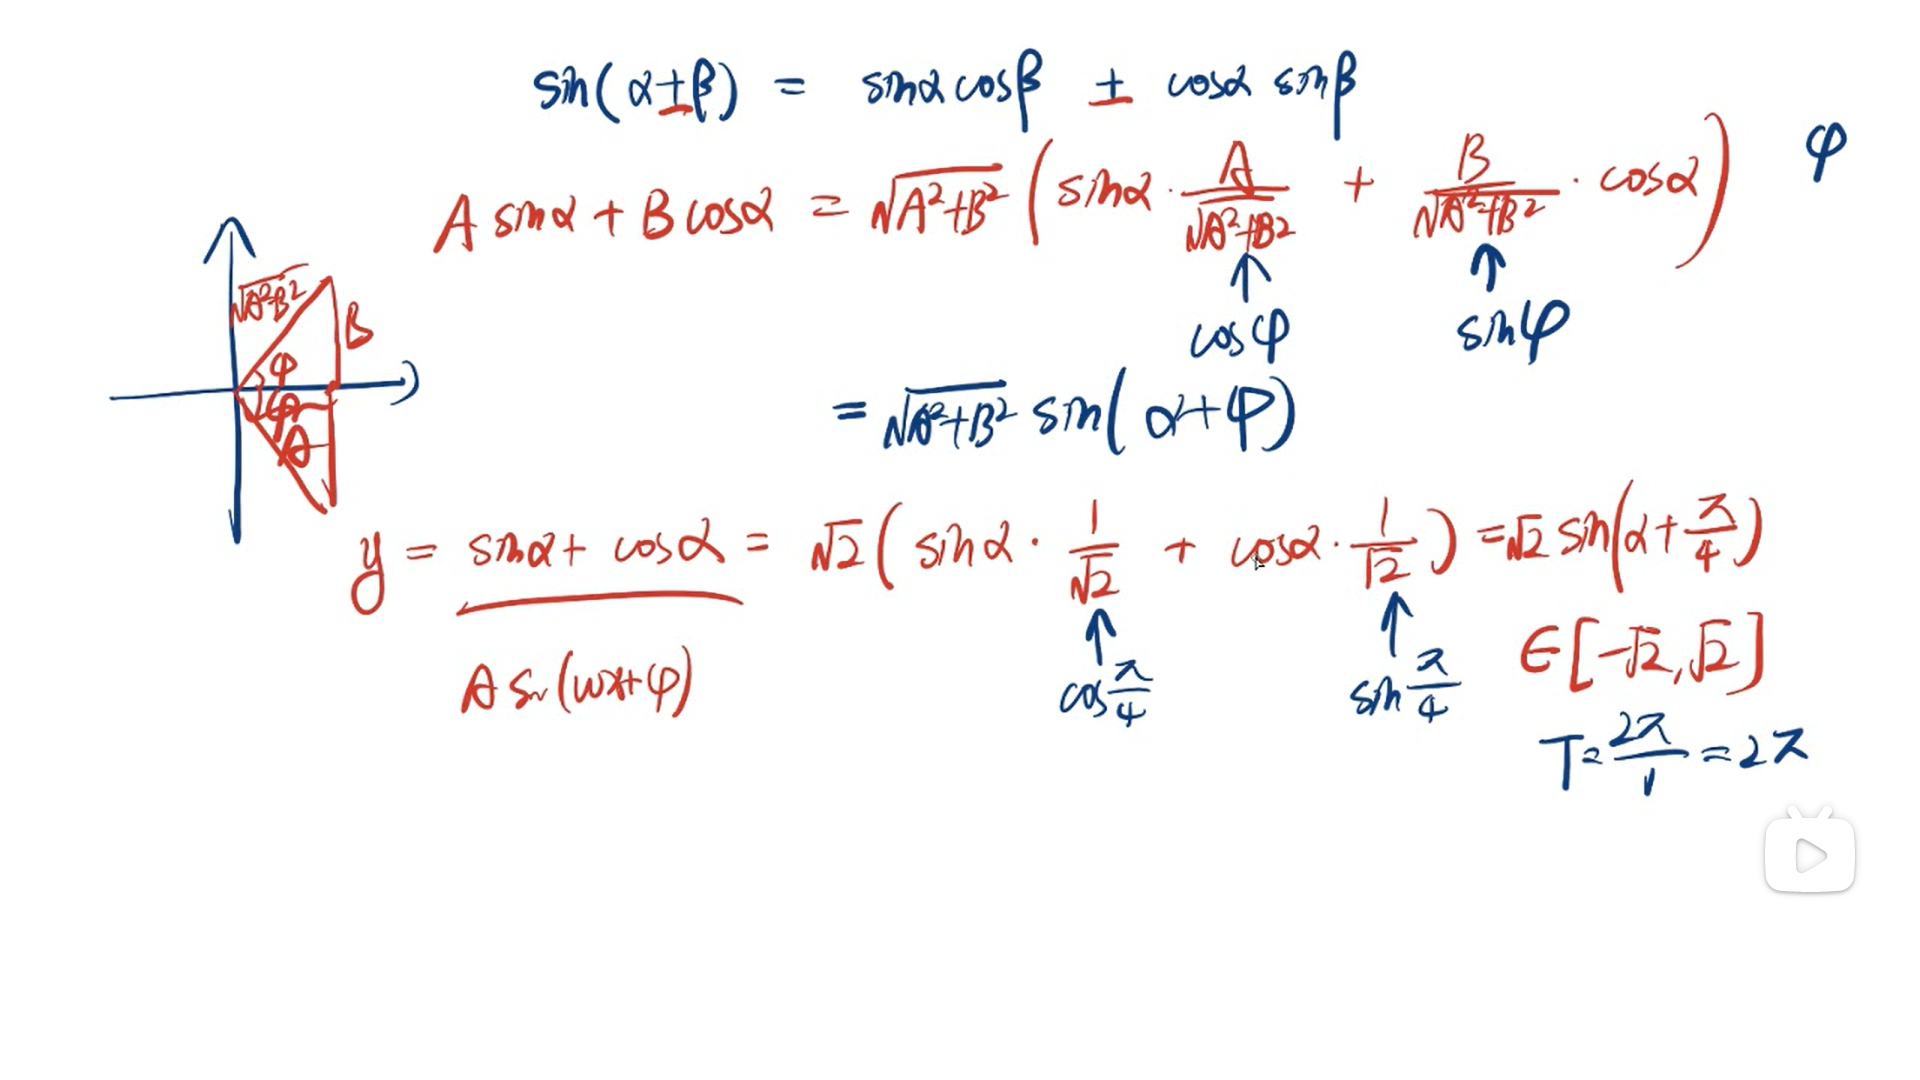 sin(α±β) = sinα cosβ ± cosα sinβ
A sinα + B cosα = √(A²+B²) (sinα · A/√(A²+B²) + B/√(A²+B²) · cosα) φ
↑ ↑
cosφ sinφ
√(A²+B²)
B
φ
φ
A
= √(A²+B²) sin(α+φ)
y = sinα + cosα = √2 (sinα · 1/√2 + cosα · 1/√2) = √2 sin(α + π/4)
↑ ↑
A sin(ωx+φ) cos π/4 sin π/4 ∈ [-√2, √2]
T = 2π/1 = 2π